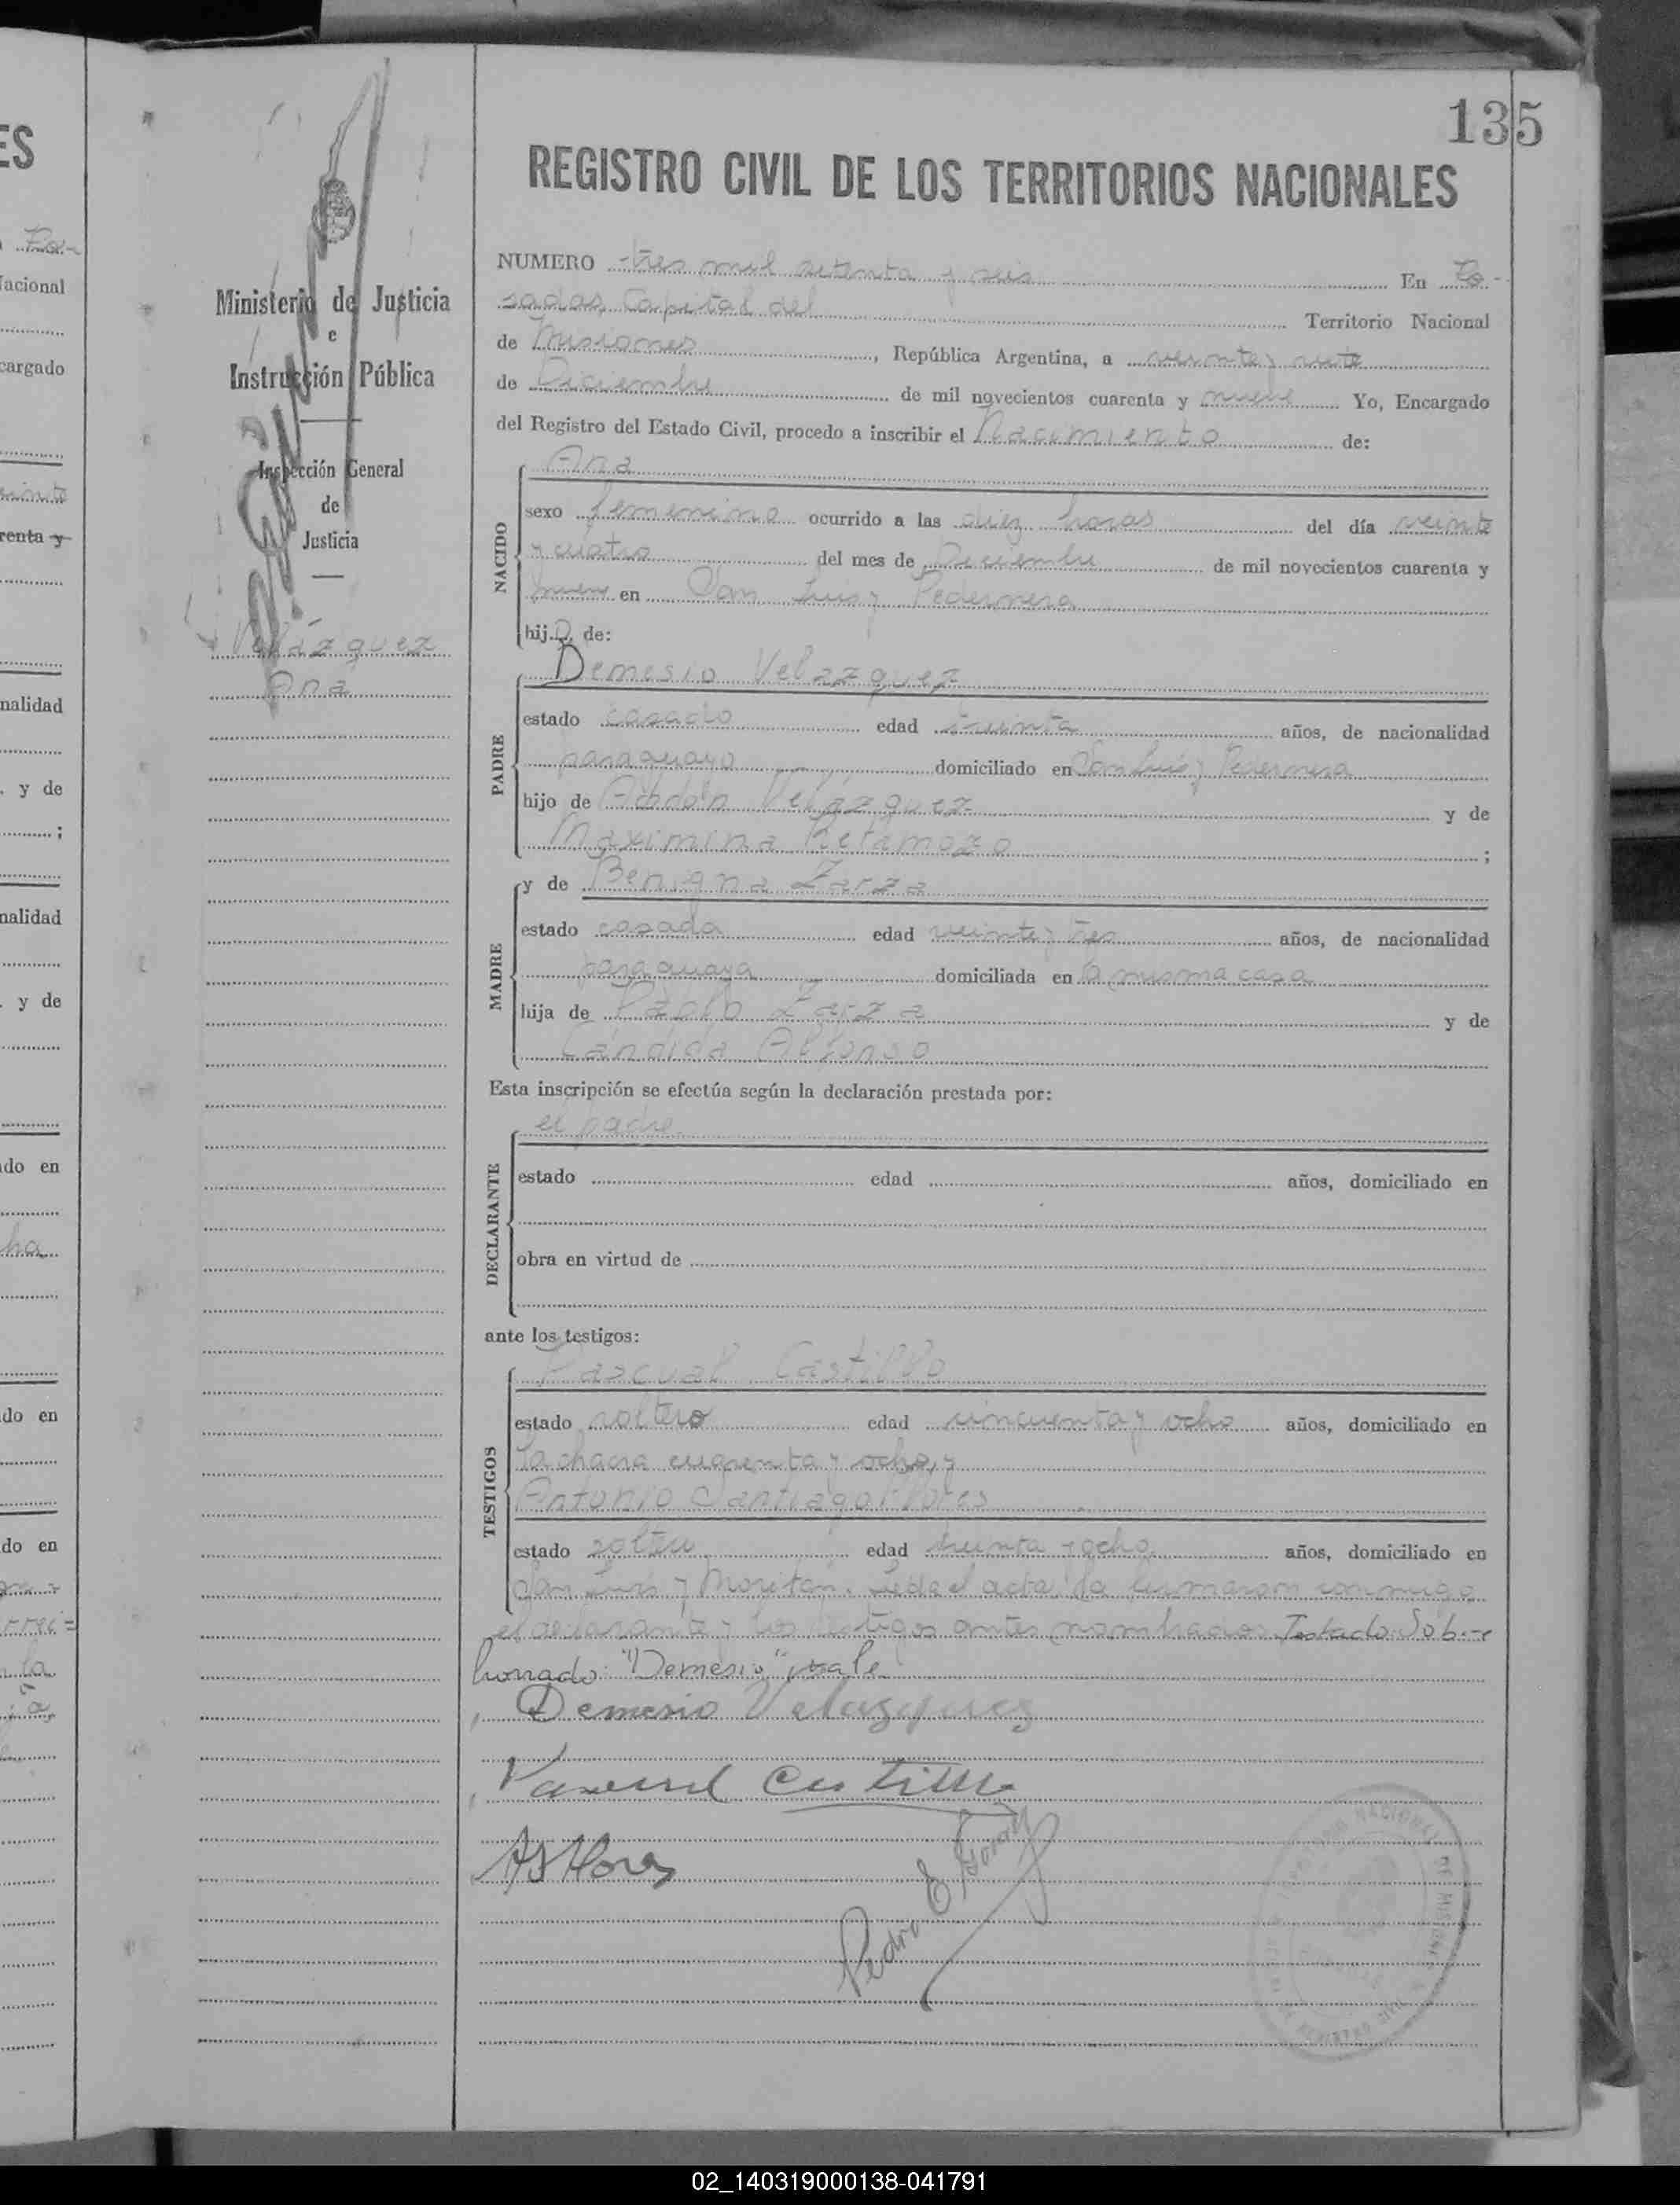 135
REGISTRO CIVIL DE LOS TERRITORIOS NACIONALES
Ministerio de Justicia
e
Instrucción Pública
Inspección General
de
Justicia
Velázquez
Ana
NUMERO tres mil setenta y seis En Po-
sadas, Capital del Territorio Nacional
de Misiones, República Argentina, a veinte y siete
de Diciembre de mil novecientos cuarenta y nueve Yo, Encargado
del Registro del Estado Civil, procedo a inscribir el Nacimiento de:
NACIDO
Ana
sexo femenino ocurrido a las diez horas del día veinte
y cuatro del mes de Diciembre de mil novecientos cuarenta y
nueve en San Luis y Pedernera
hija de:
PADRE
Demesio Velazquez
estado casado edad treinta años, de nacionalidad
paraguayo domiciliado en San Luis y Pedernera
hijo de Velázquez y de
Maximina Retamozo ;
MADRE
y de Benigna Zarza
estado casada edad veinte y tres años, de nacionalidad
paraguaya domiciliada en la misma casa
hija de Pablo Zarza y de
Cándida Alfonso
Esta inscripción se efectúa según la declaración prestada por:
DECLARANTE
el padre
estado edad años, domiciliado en
obra en virtud de
ante los testigos:
TESTIGOS
Pascual Castillo
estado soltero edad cincuenta y ocho años, domiciliado en
la chacra cuarenta y ocho, y
Antonio Santiago Flores
estado soltero edad treinta y ocho años, domiciliado en
San Luis y Leida el acta la firmaron conmigo
el declarante y los testigos antes nombrados. Testado: Sob-
borrado: "Demesio" vale
Demesio Velazquez
Pascual Castillo
AS Flores
Pedro E.
NACIONAL DE MISIONES
02_140319000138-041791